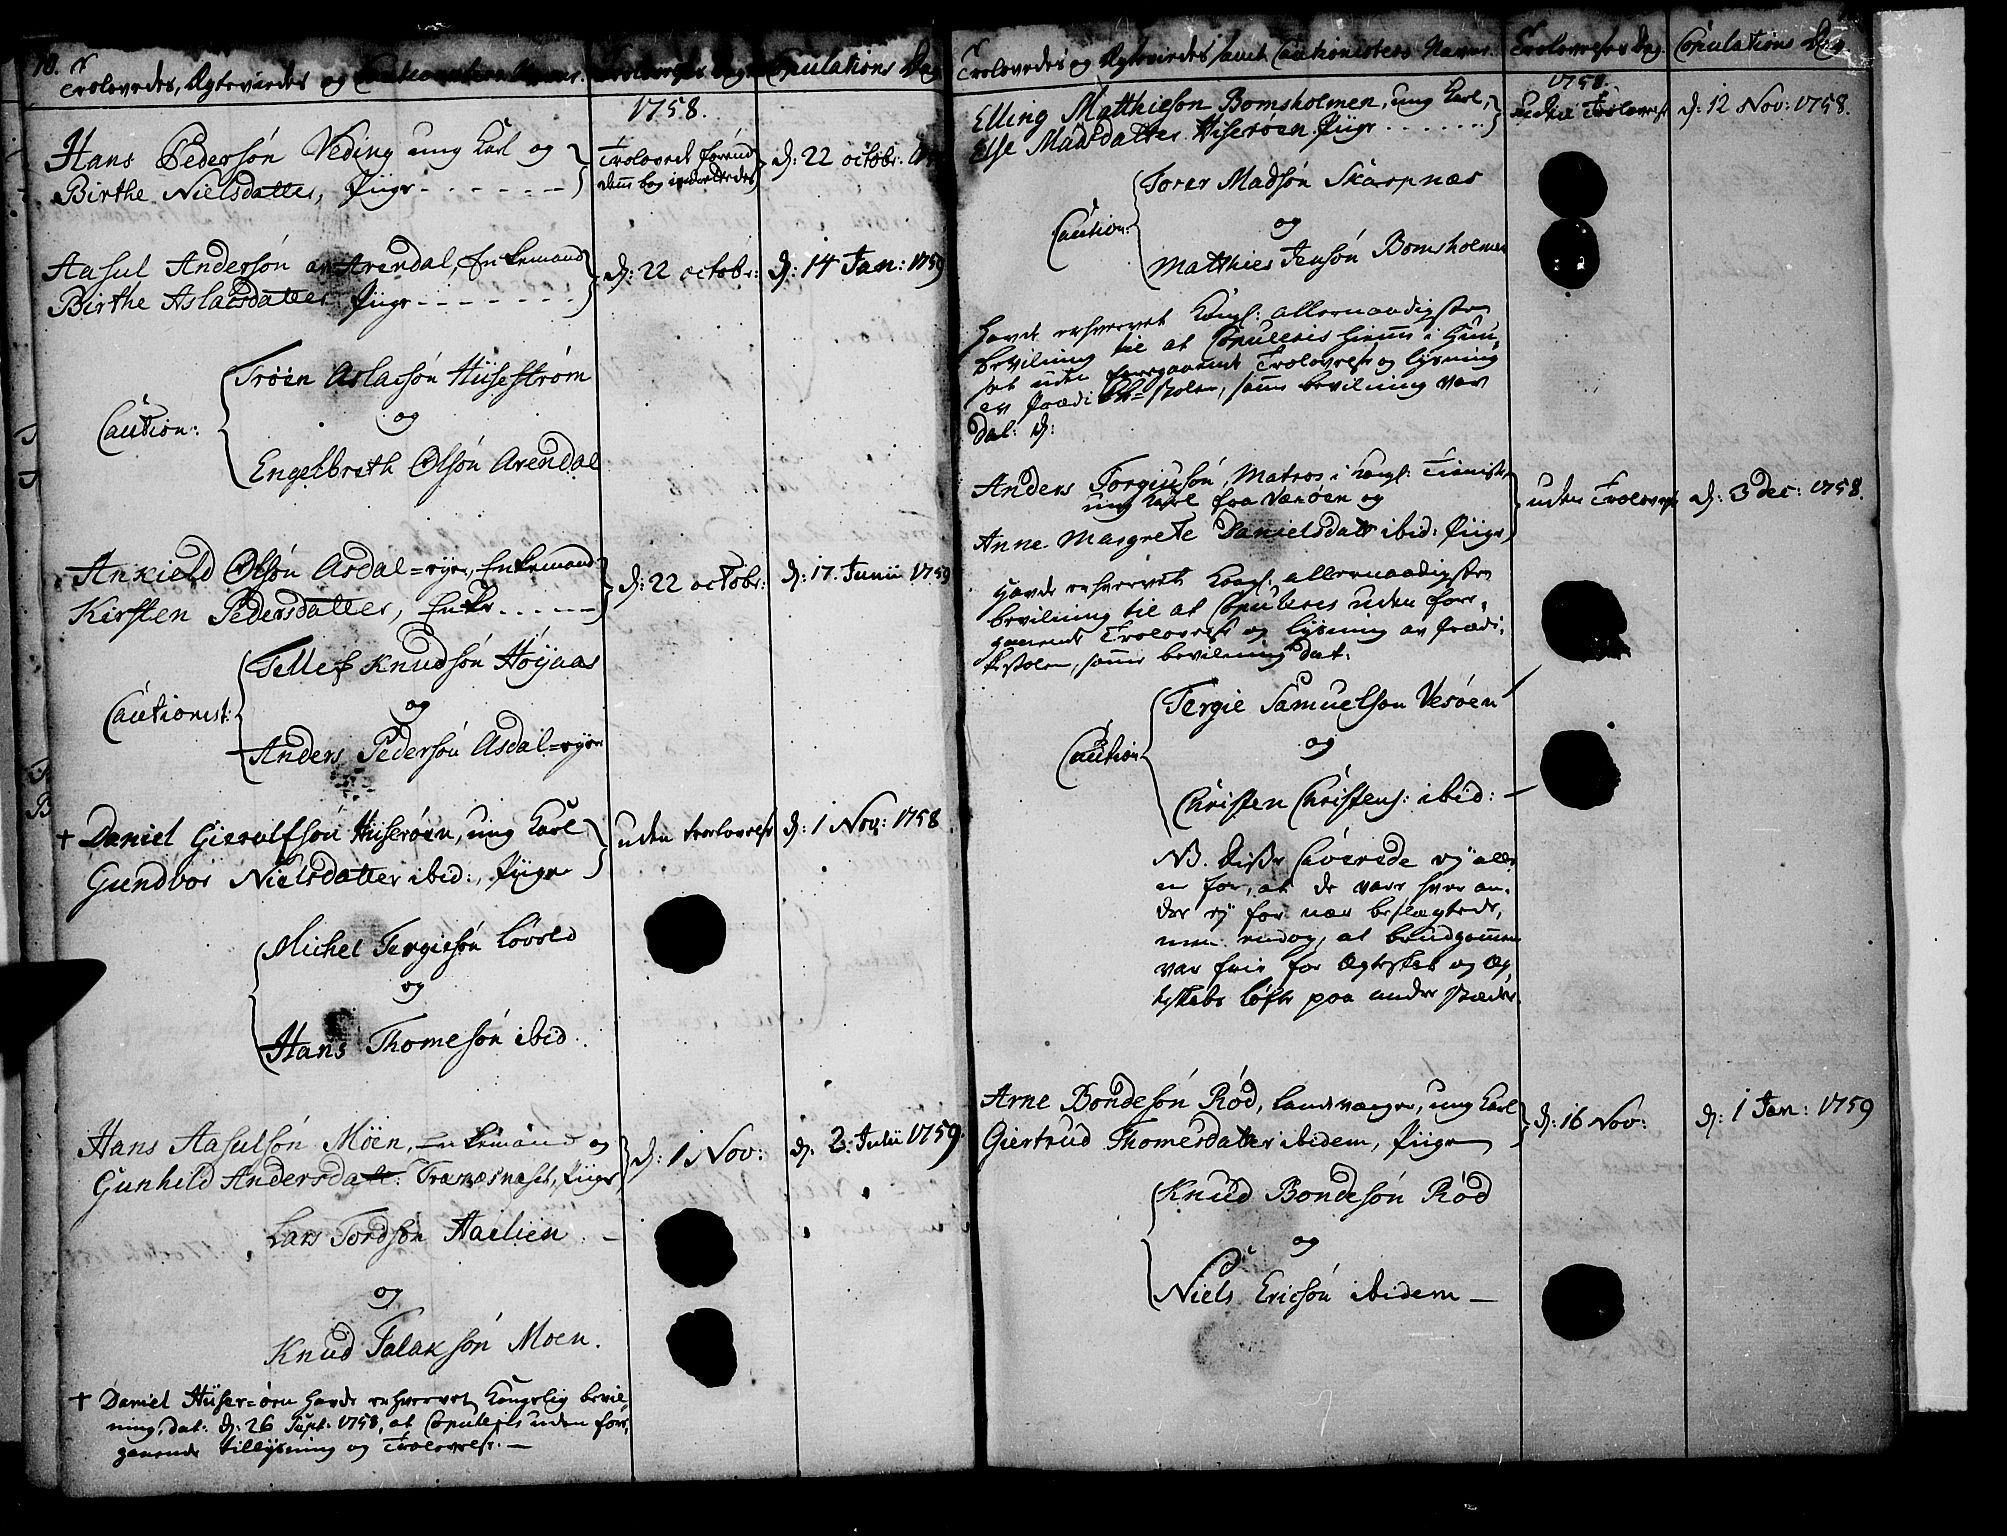 10.
Trolovedes, Egteviedes og Cautionisters Navne. Trolovelses Dag Copulations Dag
1758.
Hans Pedersón Veding ung Karl og
Birthe Nielsdatter, Piige
Trolovet forend
denne bog indrettedes
d: 22 octobr:
Aasul Andersón av Arendal, Enkemand
Birthe Aslacsdatter Piige
d: 22 octobr:
d: 14 Jan: 1759
Caution:
Tröen Aslacsón Hüseström
og
Engelbreth Olsón Arendal
Ankield Olsón Asdal=øyer, Enkemand
Kirsten Pedersdatter, Enke
d: 22 octobr:
d: 17. Junii 1759
Cautionist:
Tellef Knudsón Höyaas
og
Anders Pedersón Asdal=øyer
+ Daniel Gierulfsón Hüseröen, ung Karl
Gundvor Nielsdatter ibid:, Piige
uden trolovelse
d: 1 Nov: 1758
Michel Tergiesón Lövold
og
Hans Thomesón ibid.
Hans Aasulsón Möen, Enkemand og
Gunhild Andersdatt: Tranesnæset, Piige
d: 1 Nov:
d. 2. Julii 1759.
Lars Tordsón Haelien
og
Knud Talaksón Moen.
+ Daniel Hüser=öen havde erhvervet Kongelig bevil-
ning, dat: d: 26 Sept: 1758, at Copuleris uden for-
gaaende tillysning og Trolovelse.
Trolovedes og Egteviedes samt Cautionisters Navne. Trolovelses Dag. Copulations Dag
1758.
Elling Matthiesón Bomsholmen, ung Karl,
Else Madsdatter Hiseröen Piige
uden Trolovelse
d: 12 Nov: 1758.
Caution:
Torer Madsón Skarpnæs
og
Matthies Jensón Bomsholmen
Havde erhvervet Kongl: allernaadigste
bevilning til at Copuleris hiemme i Huu-
set uden foregaaende Trolovelse og lysning
av Prædikestolen, samme bevilning var
dat: d:
Anders Torgiusón, Matros i Kongl: Tieniste
ung Karl fra Værøen og
Anne Margrete Danielsdatt ibid: Piige
uden Trolovelse
d: 3 Dec: 1758.
Havde erhvervet Kongl: allernaadigste
bevilning til at Copuleris uden for-
gaaende Trolovelse og lysning av Prædi-
kestolen, samme bevilning dat:
Caution
Tergie Samuelson Vesöen
og
Christen Christens: ibid:
NB. disse Caverede ej alle-
ne for, at de vare hver an-
dre ej for nær beslægtede,
men endog, at brudgommen
var frie for Egteskab og Eg-
teskabs löfte paa andre stæder.
Arne Bondesón Röd, landværger, ung Karl
Giertrud Thomesdatter ibidem, Piige
d: 16 Nov:
d: 1 Jan: 1759
Knud Bondesón Röd
og
Niels Ericsón ibidem